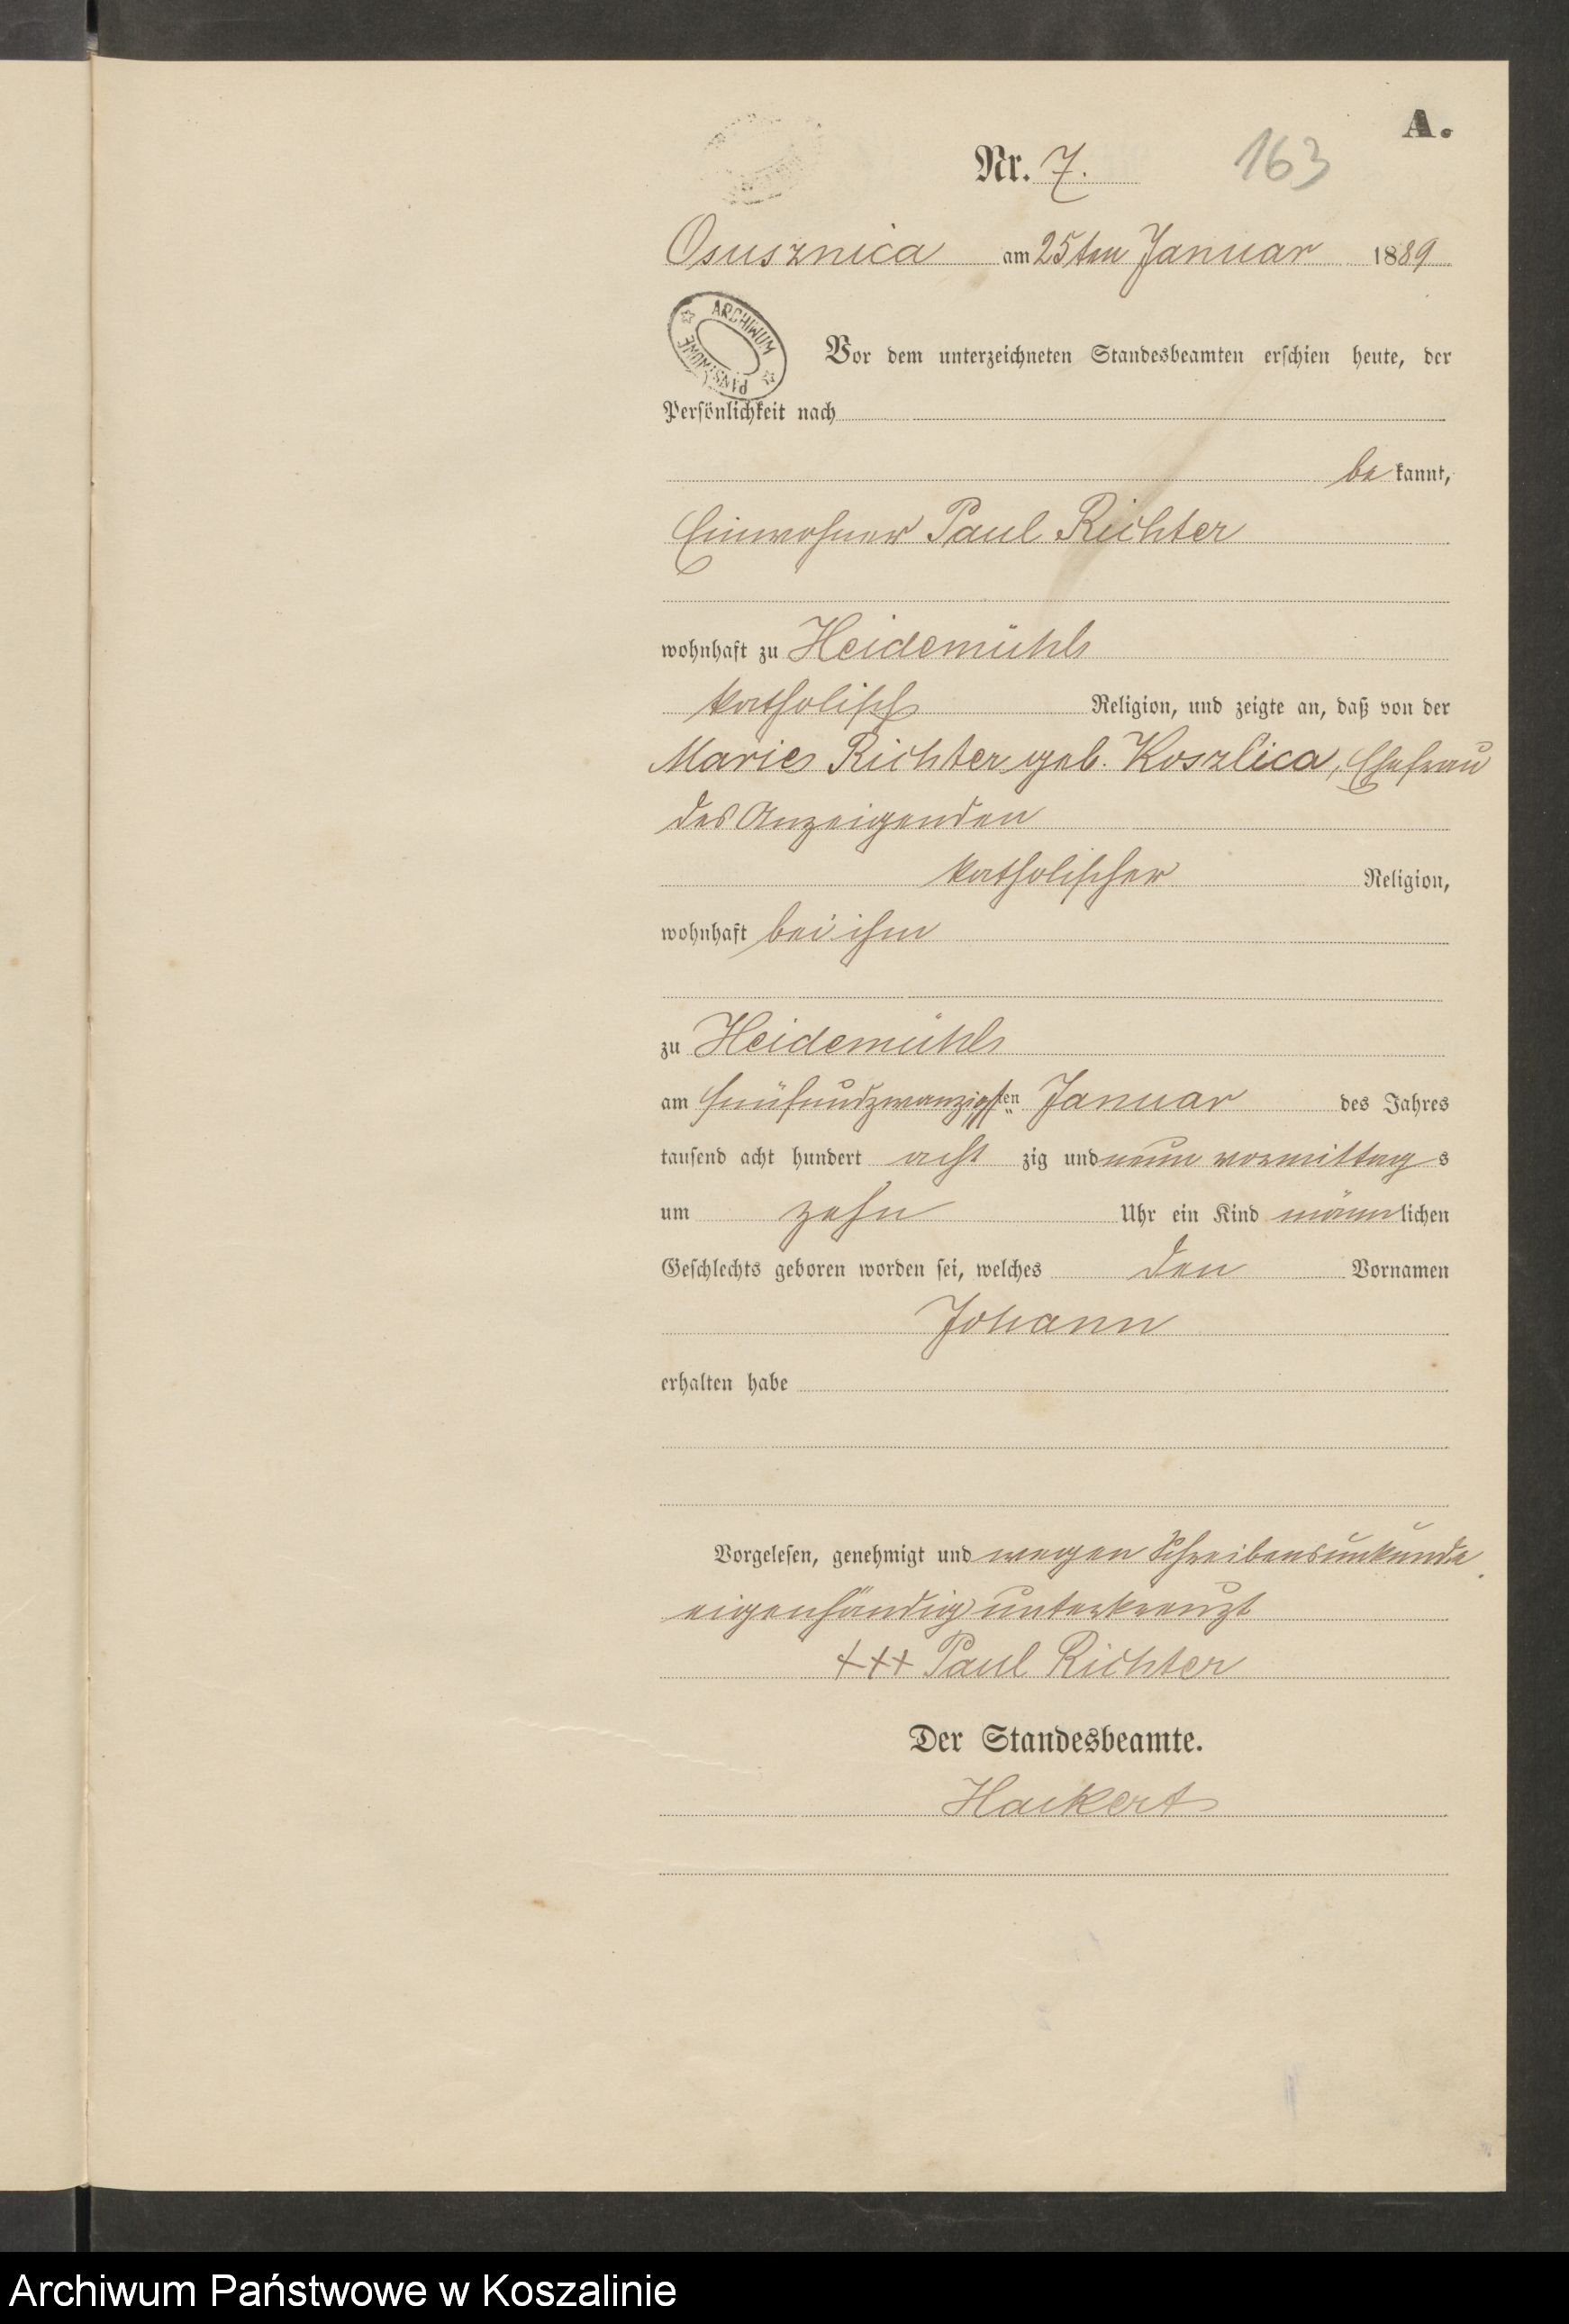 A.
Nr. 7. 163
Osusznica am 25ten Januar 1889
ARCHIWUM
PAŃSTWOWE
Vor dem unterzeichneten Standesbeamten erschien heute, der
Persönlichkeit nach
be kannt,
Einwohner Paul Richter
wohnhaft zu Heidemühle
katholisch Religion, und zeigte an, daß von der
Marie Richter geb. Koszlica, Ehefrau
des Anzeigenden
katholischer Religion,
wohnhaft bei ihm
zu Heidemühle
am fünfundzwanzigsten Januar des Jahres
tausend acht hundert acht zig und neun vormittag s
um zehn Uhr ein Kind männlichen
Geschlechts geboren worden sei, welches den Vornamen
Johann
erhalten habe
Vorgelesen, genehmigt und wegen Schreibensunkunde
eigenhändig unterkreuzt
+++ Paul Richter
Der Standesbeamte.
Hackert
Archiwum Państwowe w Koszalinie